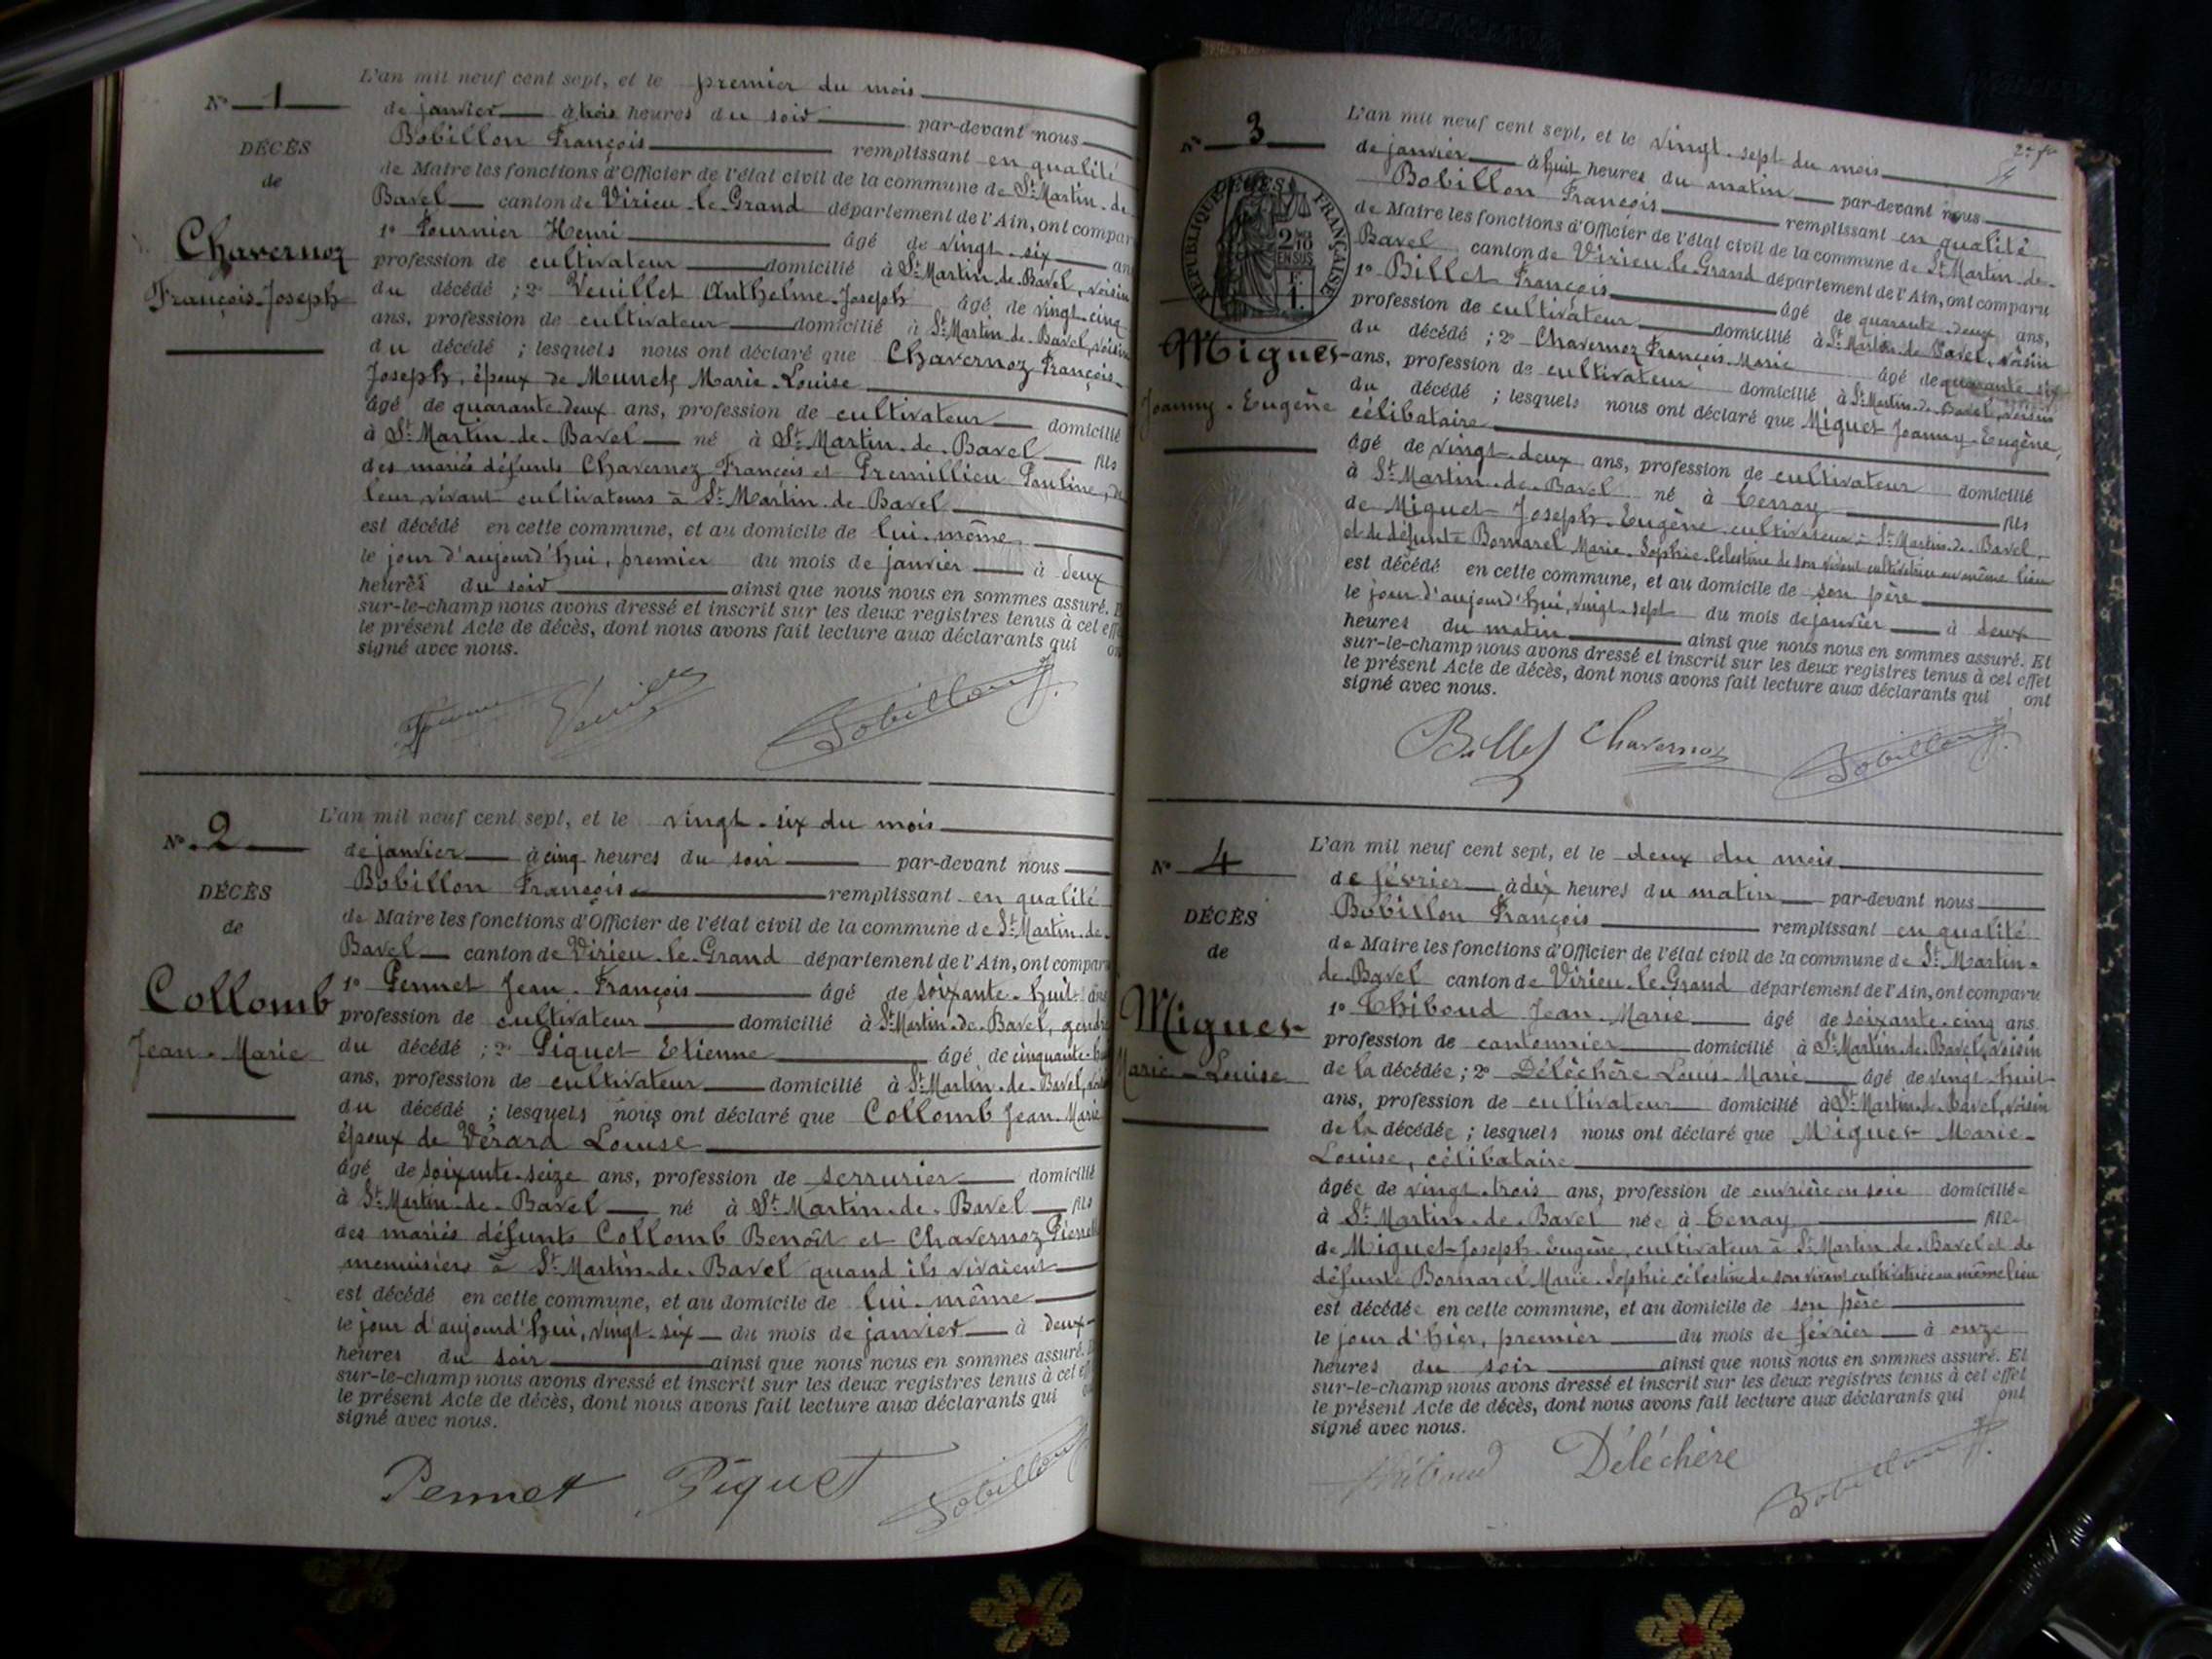 N° 1
DÉCÈS
de
Chavernoz
François-Joseph
L'an mil neuf cent sept, et le premier du mois
de janvier à trois heures du soir par-devant nous
Bobillon François remplissant en qualité
de Maire les fonctions d'Officier de l'état civil de la commune de St Martin-de-
Bavel canton de Virieu-le-Grand département de l'Ain, ont compar
1° Fournier Henri âgé de vingt-six an
profession de cultivateur domicilié à St Martin-de-Bavel, voisin
du décédé ; 2° Veuillet Anthelme-Joseph âgé de vingt-cinq
ans, profession de cultivateur domicilié à St Martin-de-Bavel, voisin
du décédé ; lesquels nous ont déclaré que Chavernoz François-
Joseph, époux de Marie-Louise
âgé de quarante-deux ans, profession de cultivateur domicilié
à St Martin-de-Bavel né à St Martin-de-Bavel fils
des mariés défunts Chavernoz François et Premillieu Pauline, de
leur vivant cultivateurs à St Martin-de-Bavel
est décédé en cette commune, et au domicile de lui-même
le jour d'aujourd'hui, premier du mois de janvier à deux
heures du soir ainsi que nous nous en sommes assuré. E
sur-le-champ nous avons dressé et inscrit sur les deux registres tenus à cet eff
le présent Acte de décès, dont nous avons fait lecture aux déclarants qui on
signé avec nous.
Bobillon f.
N° 2
DÉCÈS
de
Collomb
Jean-Marie
L'an mil neuf cent sept, et le vingt-six du mois
de janvier à cinq heures du soir par-devant nous
Bobillon François remplissant en qualité
de Maire les fonctions d'Officier de l'état civil de la commune de St Martin-de-
Bavel canton de Virieu-le-Grand département de l'Ain, ont comparu
1° Pennet Jean-François âgé de soixante-huit ans
profession de cultivateur domicilié à St Martin-de-Bavel, gendre
du décédé ; 2° Piquet Etienne âgé de cinquante-
ans, profession de cultivateur domicilié à St Martin-de-Bavel,
du décédé ; lesquels nous ont déclaré que Collomb Jean-Marie
époux de Vérard Louise
âgé de soixante-seize ans, profession de serrurier domicilié
à St Martin-de-Bavel né à St Martin-de-Bavel fils
des mariés défunts Collomb Benoît et Chavernoz
menuisiers à St Martin-de-Bavel quand ils vivaient
est décédé en cette commune, et au domicile de lui-même
le jour d'aujourd'hui, vingt-six du mois de janvier à deux
heures du soir ainsi que nous nous en sommes assuré.
sur-le-champ nous avons dressé et inscrit sur les deux registres tenus à cet ef
le présent Acte de décès, dont nous avons fait lecture aux déclarants qui
signé avec nous.
Pennet Piquet Bobillon
2e f°
N° 3
RÉPUBLIQUE FRANÇAISE
2/10 EN SUS
Miguet
Joanny-Eugène
L'an mil neuf cent sept, et le vingt-sept du mois
de janvier à huit heures du matin par-devant nous
Bobillon François remplissant en qualité
de Maire les fonctions d'Officier de l'état civil de la commune de St Martin-de-
Bavel canton de Virieu-le-Grand département de l'Ain, ont comparu
1° Billet François âgé de quarante-deux ans,
profession de cultivateur domicilié à St Martin-de-Bavel, voisin
du décédé ; 2° Chavernoz François-Marie âgé de quarante-six
ans, profession de cultivateur domicilié à St Martin-de-Bavel, voisin
du décédé ; lesquels nous ont déclaré que Miguet Joanny-Eugène,
célibataire
âgé de vingt-deux ans, profession de cultivateur domicilié
à St Martin-de-Bavel né à Tenay fils
de Miguet Joseph-Eugène cultivateur à St Martin-de-Bavel
et de défunte Bornarel Marie-Sophie-Célestine de son vivant cultivatrice au même lieu
est décédé en cette commune, et au domicile de son père
le jour d'aujourd'hui, vingt-sept du mois de janvier à deux
heures du matin ainsi que nous nous en sommes assuré. Et
sur-le-champ nous avons dressé et inscrit sur les deux registres tenus à cet effet
le présent Acte de décès, dont nous avons fait lecture aux déclarants qui ont
signé avec nous.
Billet Chavernoz Bobillon f.
N° 4
DÉCÈS
de
Miguet
Marie-Louise
L'an mil neuf cent sept, et le deux du mois
de février à dix heures du matin par-devant nous
Bobillon François remplissant en qualité
de Maire les fonctions d'Officier de l'état civil de la commune de St Martin-
de-Bavel canton de Virieu-le-Grand département de l'Ain, ont comparu
1° Thiboud Jean-Marie âgé de soixante-cinq ans
profession de cantonnier domicilié à St Martin-de-Bavel, voisin
de la décédée ; 2° Déléchère Louis-Marie âgé de vingt-huit
ans, profession de cultivateur domicilié à St Martin-de-Bavel, voisin
de la décédée ; lesquels nous ont déclaré que Miguet Marie-
Louise, célibataire
âgée de vingt-trois ans, profession de ouvrière en soie domiciliée
à St Martin-de-Bavel née à Tenay fille
de Miguet Joseph-Eugène, cultivateur à St Martin-de-Bavel et de
défunte Bornarel Marie-Sophie célestine de son vivant cultivatrice au même lieu
est décédée en cette commune, et au domicile de son père
le jour d'hier, premier du mois de février à onze
heures du soir ainsi que nous nous en sommes assuré. Et
sur-le-champ nous avons dressé et inscrit sur les deux registres tenus à cet effet
le présent Acte de décès, dont nous avons fait lecture aux déclarants qui ont
signé avec nous.
Thiboud Déléchère Bobillon f.